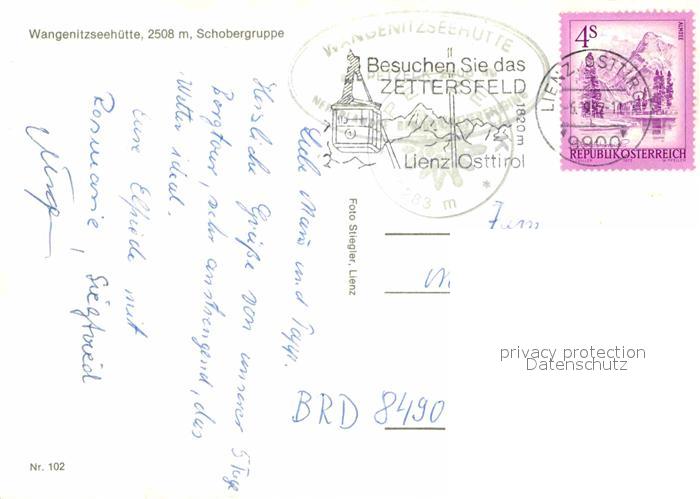 Wangenitzseehütte, 2508 m, Schobergruppe
WANGENITZSEEHÜTTE
Besuchen Sie das
ZETTERSFELD
1820 m
Lienz Osttirol
LIENZ, OSTTIROL
9900
4S
ALMSEE
REPUBLIK ÖSTERREICH
Liebe
und
Herzliche Grüße von unserer 5 Tage
Bergtour, sehr anstrengend, das
Wetter ideal.
Eure Elfriede mit
Rosmarie, Siegfried
Foto Stiegler, Lienz
BRD 8490
privacy protection
Datenschutz
Nr. 102